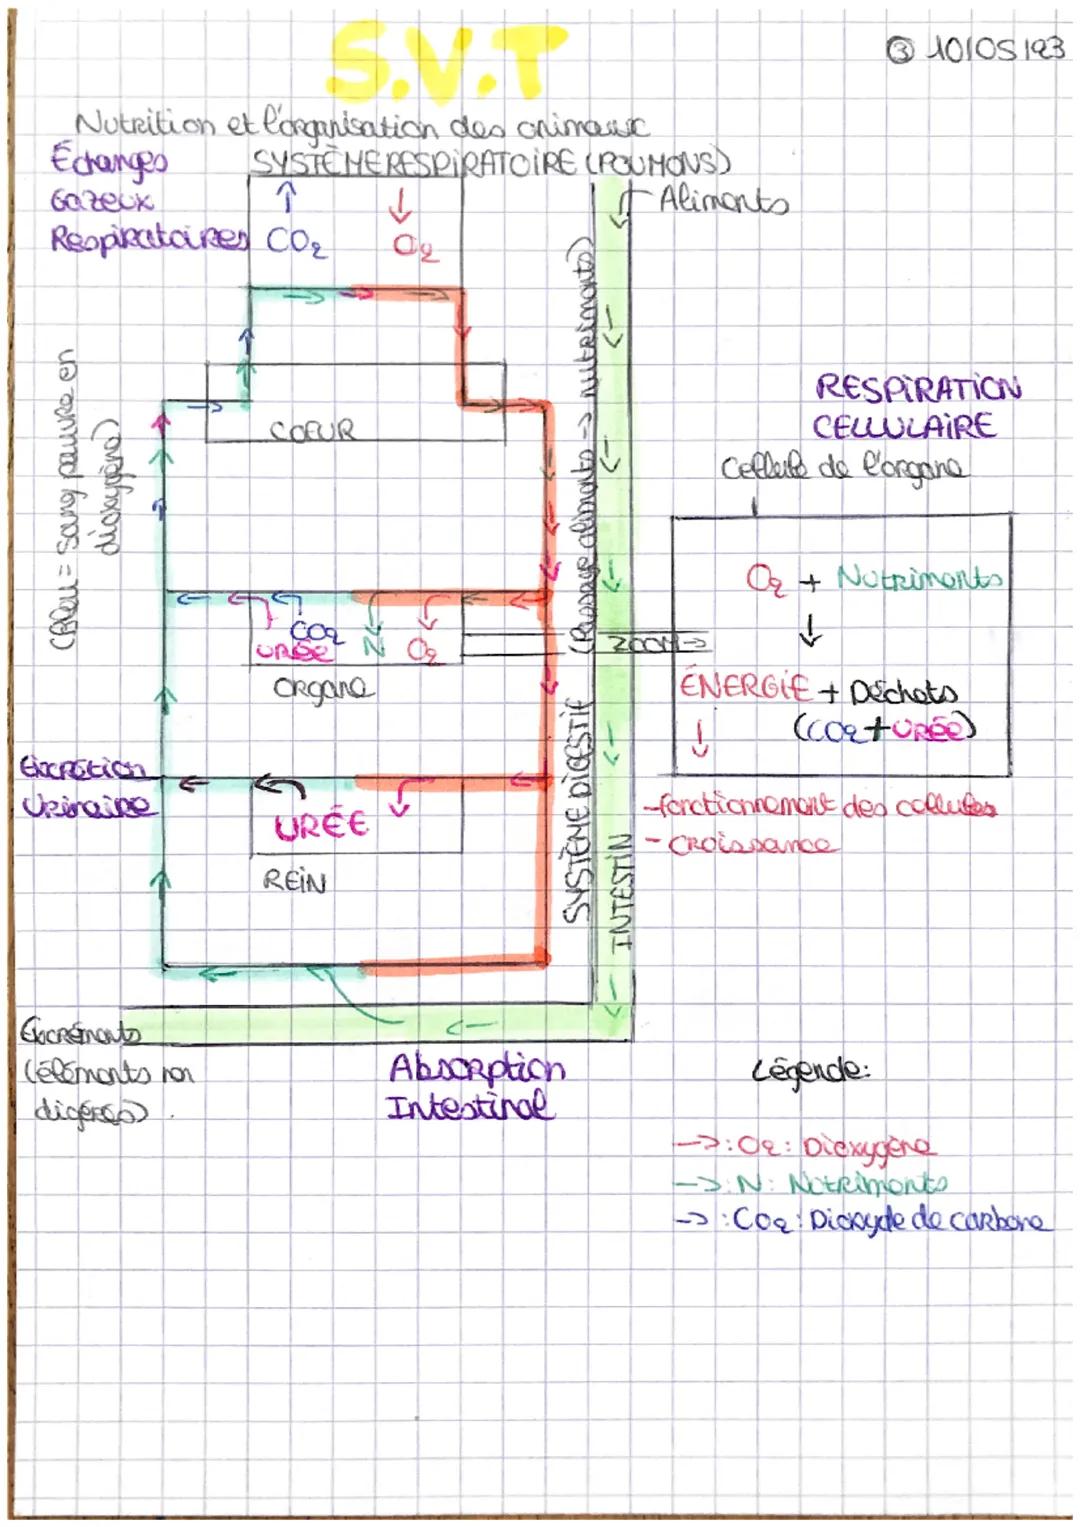 S.V.T
③ 10/05/23
Nutrition et l'organisation des animaux
Échanges
Gazeux
Respiratoires
SYSTÈME RESPIRATOIRE (POUMONS)
Aliments
CO2
O2
(Bleu = sang pauvre en
dioxygène)
COEUR
(Passage aliments -> nutriments)
SYSTÈME DIGESTIF
INTESTIN
RESPIRATION
CELLULAIRE
Cellule de l'organe
O2 + Nutriments
ÉNERGIE + Déchets
(CO2 + URÉE)
-fonctionnement des cellules
- croissance
ZOOM ->
CO2
URÉE
N
O2
organe
Excrétion
Urinaire
URÉE
REIN
Excréments
(éléments non
digérés).
Absorption
Intestinal
Légende:
->: O2: Dioxygène
->: N: Nutriments
->: CO2: Dioxyde de carbone